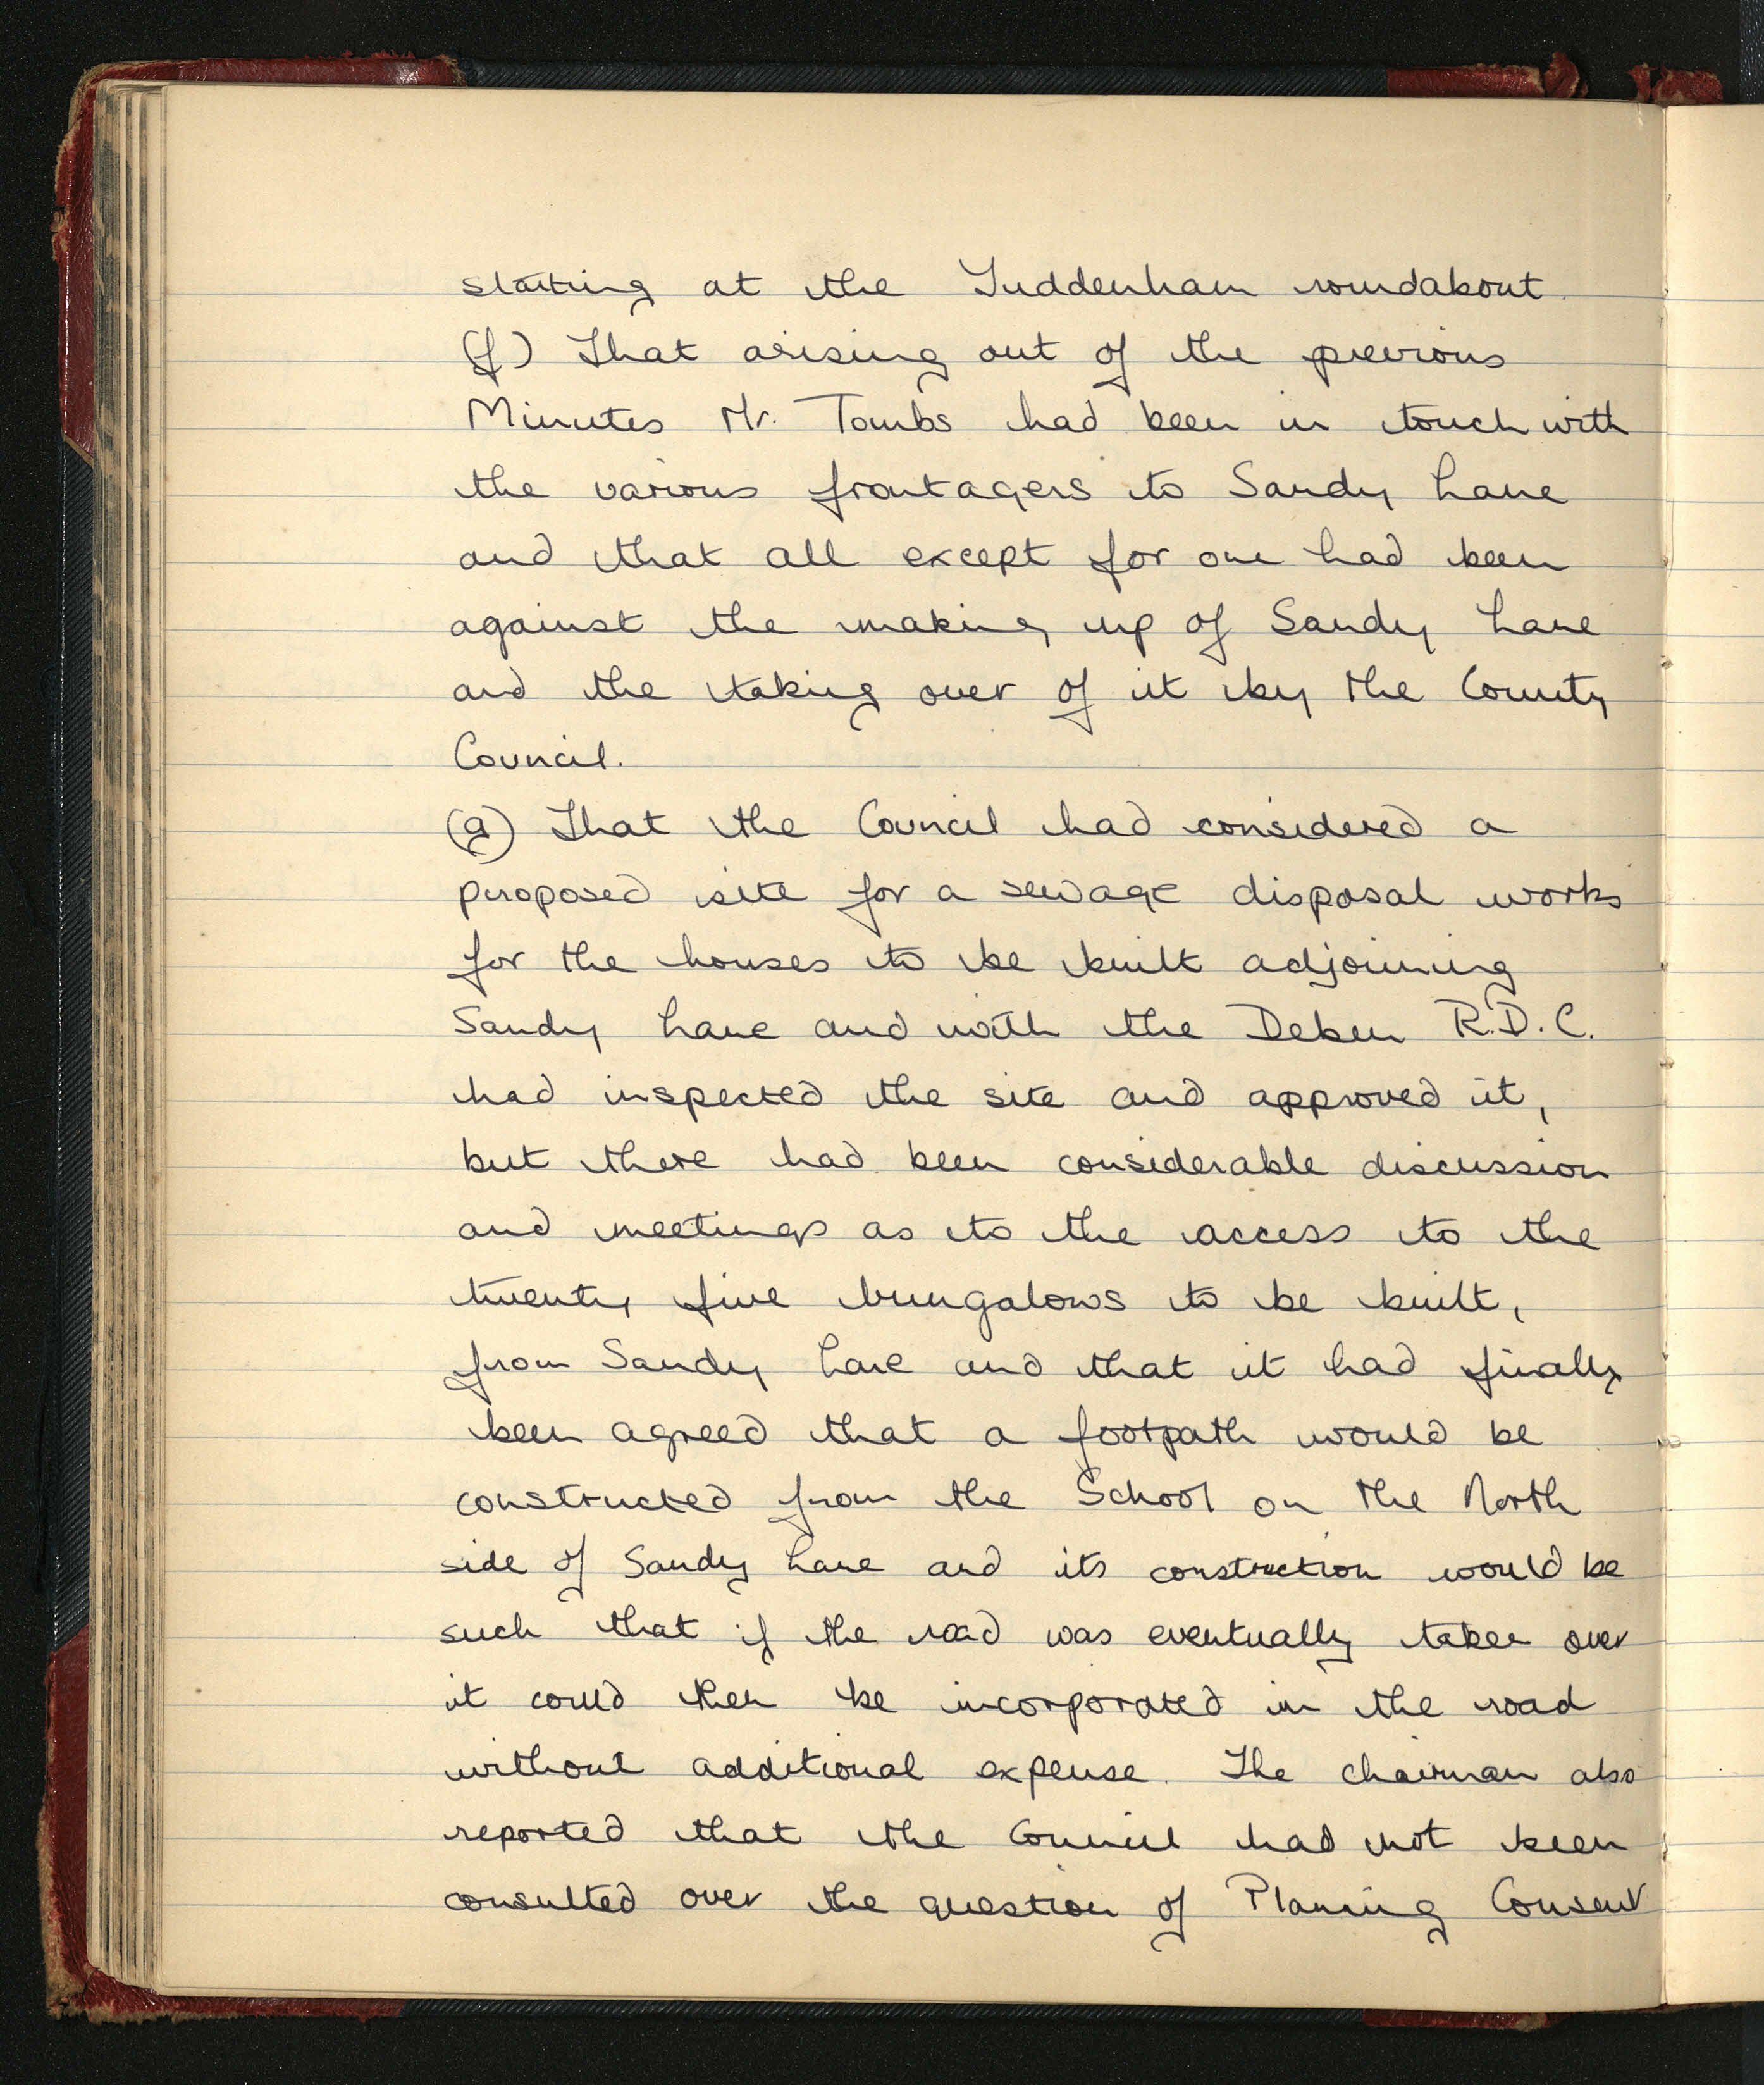 starting at the Tuddenham roundabout.
(f) That arising out of the previous
Minutes Mr. Tombs had been in touch with
the various frontagers to Sandy Lane
and that all except for one had been
against the making up of Sandy Lane
and the taking over of it by the County
Council.
(g) That the Council had considered a
proposed site for a sewage disposal works
for the houses to be built adjoining
Sandy Lane and with the Deben R.D.C.
had inspected the site and approved it,
but there had been considerable discussion
and meetings as to the access to the
twenty five bungalows to be built,
from Sandy Lane and that it had finally
been agreed that a footpath would be
constructed from the School on the North
side of Sandy Lane and its construction would be
such that if the road was eventually taken over
it could then be incorporated in the road
without additional expense. The chairman also
reported that the Council had not been
consulted over the question of Planning Consent